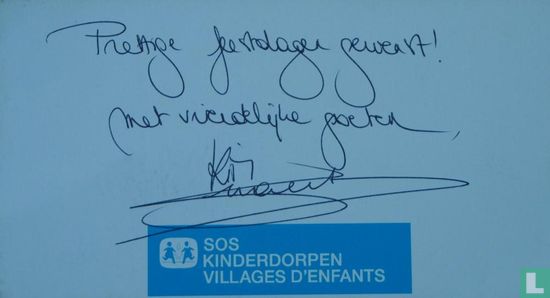 Prettige feestdagen gewenst!
met vriendelijke groeten,
Kim
SOS
KINDERDORPEN
VILLAGES D'ENFANTS